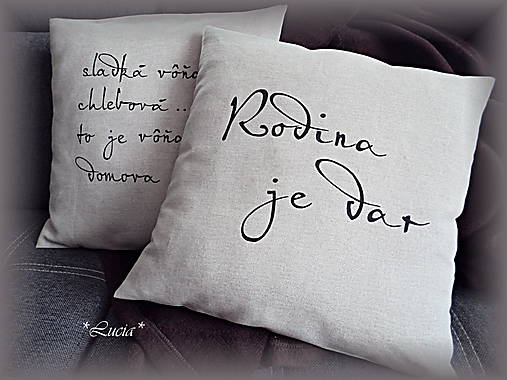 sladká vôňa
chlebová ..
to je vôňa
domova
Rodina
je dar
*Lucia*